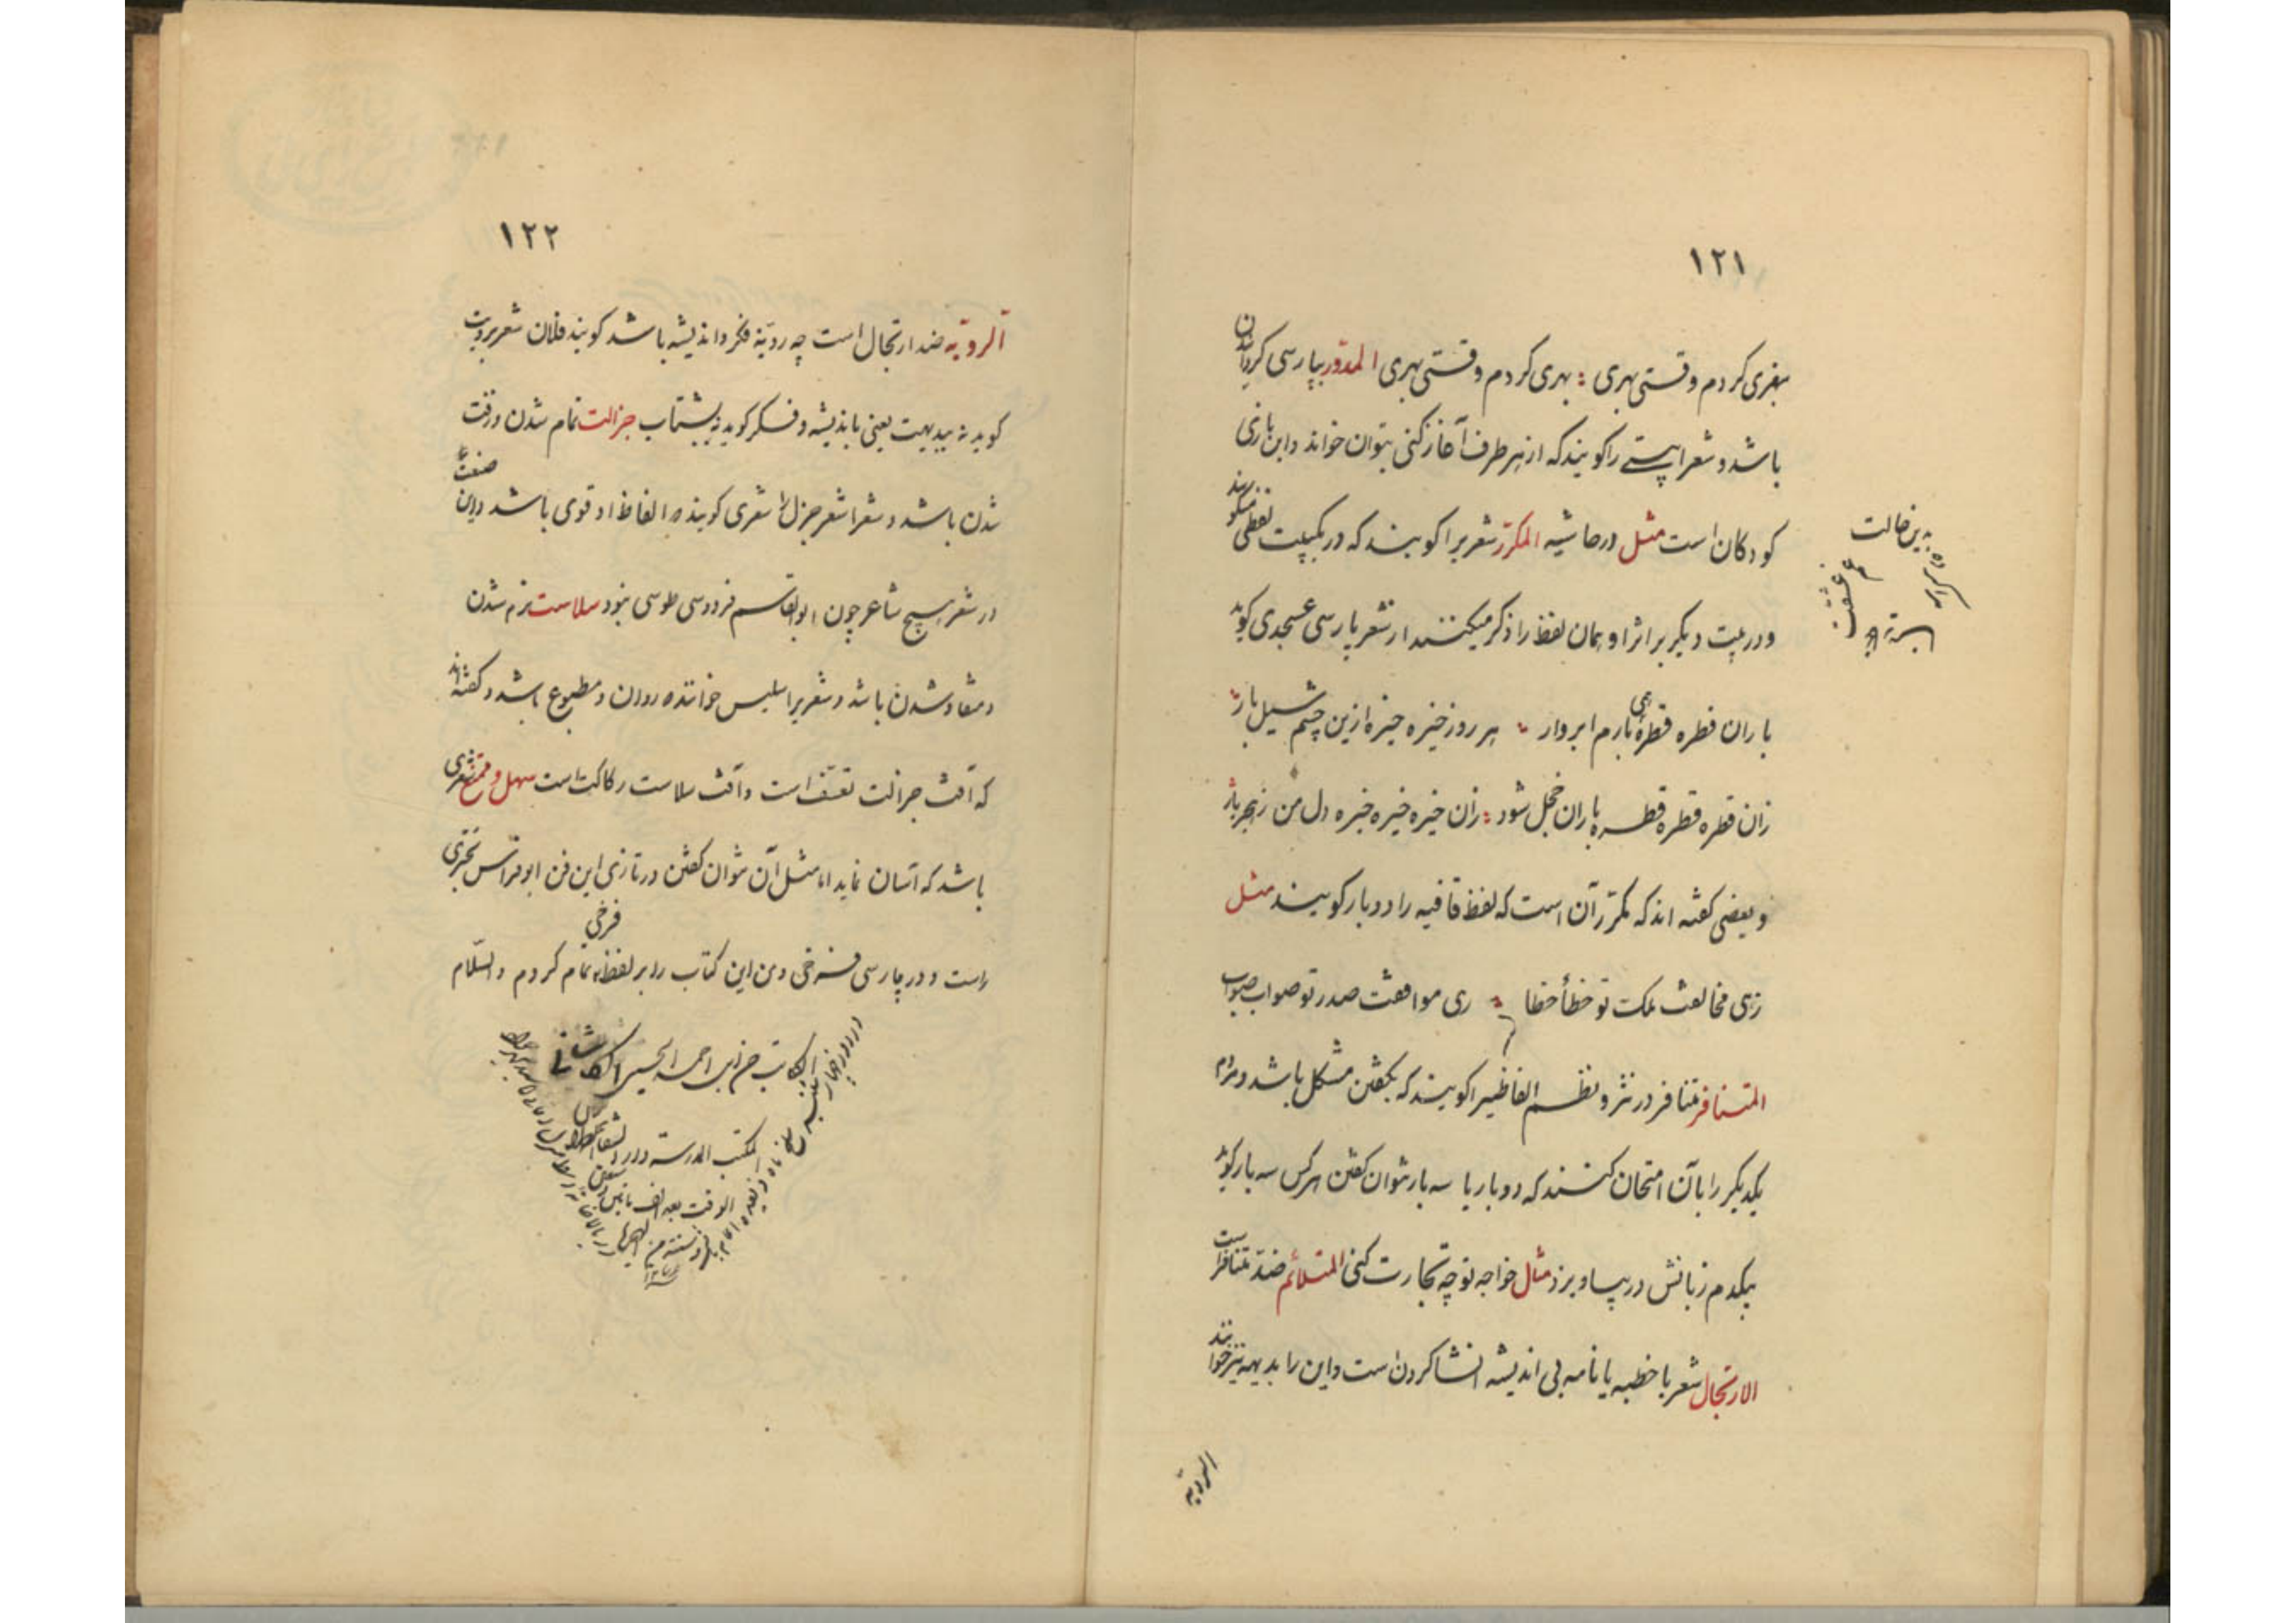 ۱۲۱
بفری کردم و قستی بهری : بهری کردم و قستی بهری المدوّر بپارسی گردان
باشد و شعرا بیتی را گویند که از هر طرف آغاز کنی بتوان خواند و این بازی
کودکان است مثل در حاشیه المکرّر شعریرا گویند که در یکبیت لفظی میگویند
و در بیت دیگر بر اثر او همان لفظ را ذکر میکنند از شعر پارسی عسجدی گوید
باران قطره قطره همی بارم ابروار : هر روز خیره خیره ازین چشم سیل بار
زان قطره قطره قطره باران خجل شود : زان خیره خیره خیره دل من ز هجر یار
و بعضی گفته اند که مکرّر آن است که لفظ قافیه را دو بار گویند مثل
زهی مخالفت ملکت تو خطأ خطا : زهی موافقت صدر تو صواب صواب
المتنافر متنافر در نثر و نظم الفاظیرا گویند که بگفتن مشکل باشد و مردم
یکدیگر را بآن امتحان کنند که دو بار یا سه بار نتوان گفتن هر کس سه بار گوید
بیکدم زبانش در پیاویزد مثال خواجه تو چه تجارت کنی المتلائم ضد متنافر است
الارتجال شعر یا خطبه یا نامه بی اندیشه انشا کردن است و این را بدیهه نیز خوانند
الرویه
بدین حالت
۱۲۲
الرویّه ضد ارتجال است چه رویّة فکر و اندیشه باشد گویند فلان شعر برویت
گوید نه ببدیهت یعنی باندیشه و فکر گوید نه بشتاب جزالت تمام شدن و زفت
شدن باشد و شعرا شعر جزل شعری گویند که الفاظ او قوی باشد و این صنعت
در شعر هیچ شاعر چون ابوالقاسم فردوسی طوسی نبود سلاست نرم شدن
و منقاد شدن باشد و شعریرا سلیس خوانند که روان و مطبوع باشد و گفته اند
که آفت جزالت تعسّف است و آفت سلاست رکاکت است سهل و ممتنع شعری
باشد که آسان نماید اما مثل آن نتوان گفتن در تازی این فن ابوفراس بحتری
راست و در پارسی فرخی و من این کتاب را بر لفظ فرخی تمام کردم والسّلام
الکاتب ابن احمد الحسین الکاشانی